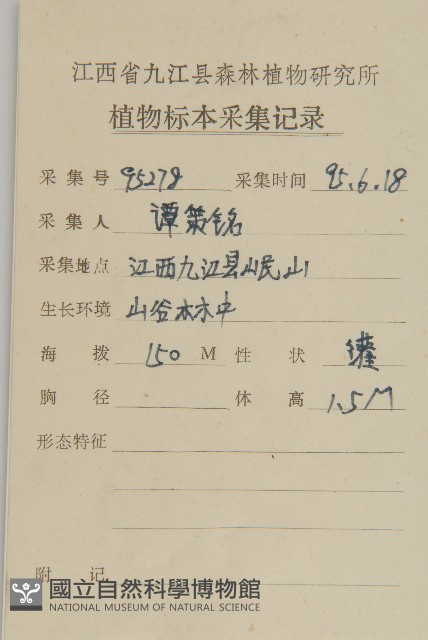 江西省九江县森林植物研究所
植物标本采集记录
采集号 95278 采集时间 95.6.18
采集人 谭策铭
采集地点 江西九江县岷山
生长环境 山谷林中
海拨 150 M 性状 灌
胸径 体高 1.5M
形态特征
附记
國立自然科學博物館
NATIONAL MUSEUM OF NATURAL SCIENCE